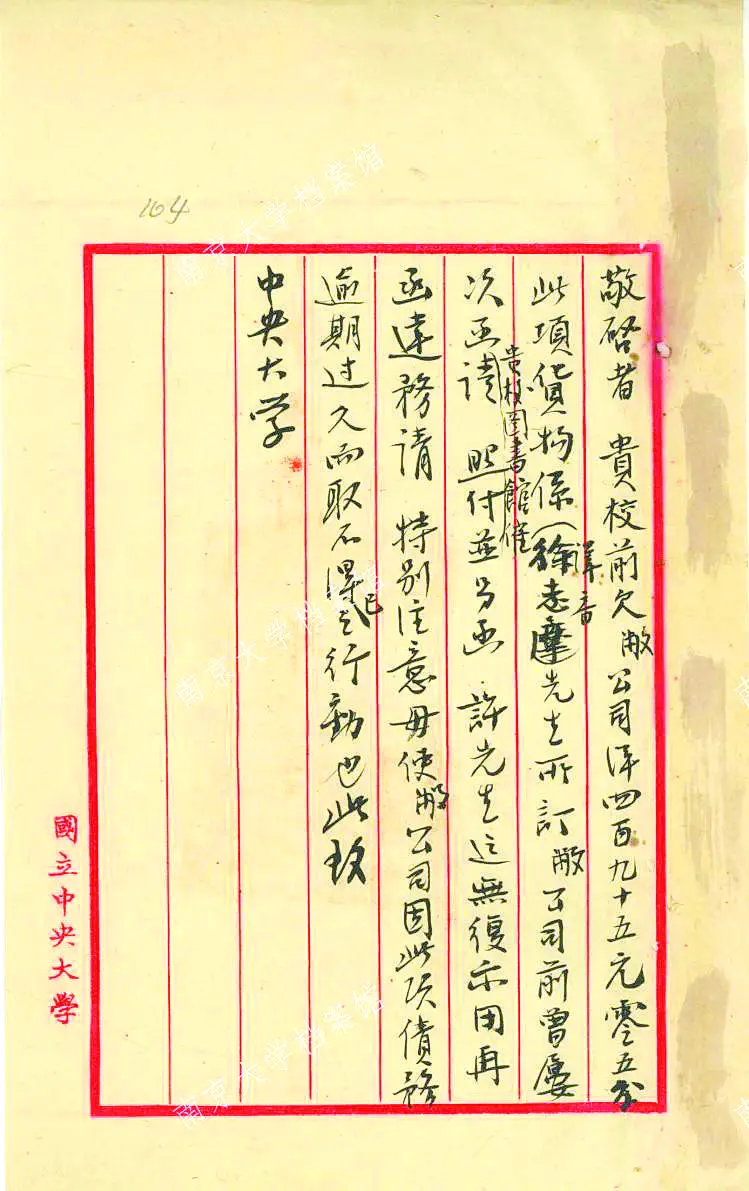 104
敬啓者 貴校前欠敝公司洋四百九十五元零五分
此項貨物係(徐志摩譯音先生所訂敝公司前曾屢
次函請貴校圖書館催照付並另函 許先生迄無復示用再
函達務請 特別注意毋使敝公司因此項債務
逾期过久而取不得已之行動也此致
中央大学
國立中央大學
南京大学档案馆
南京大学档案馆
南京大学档案馆
南京大学档案馆